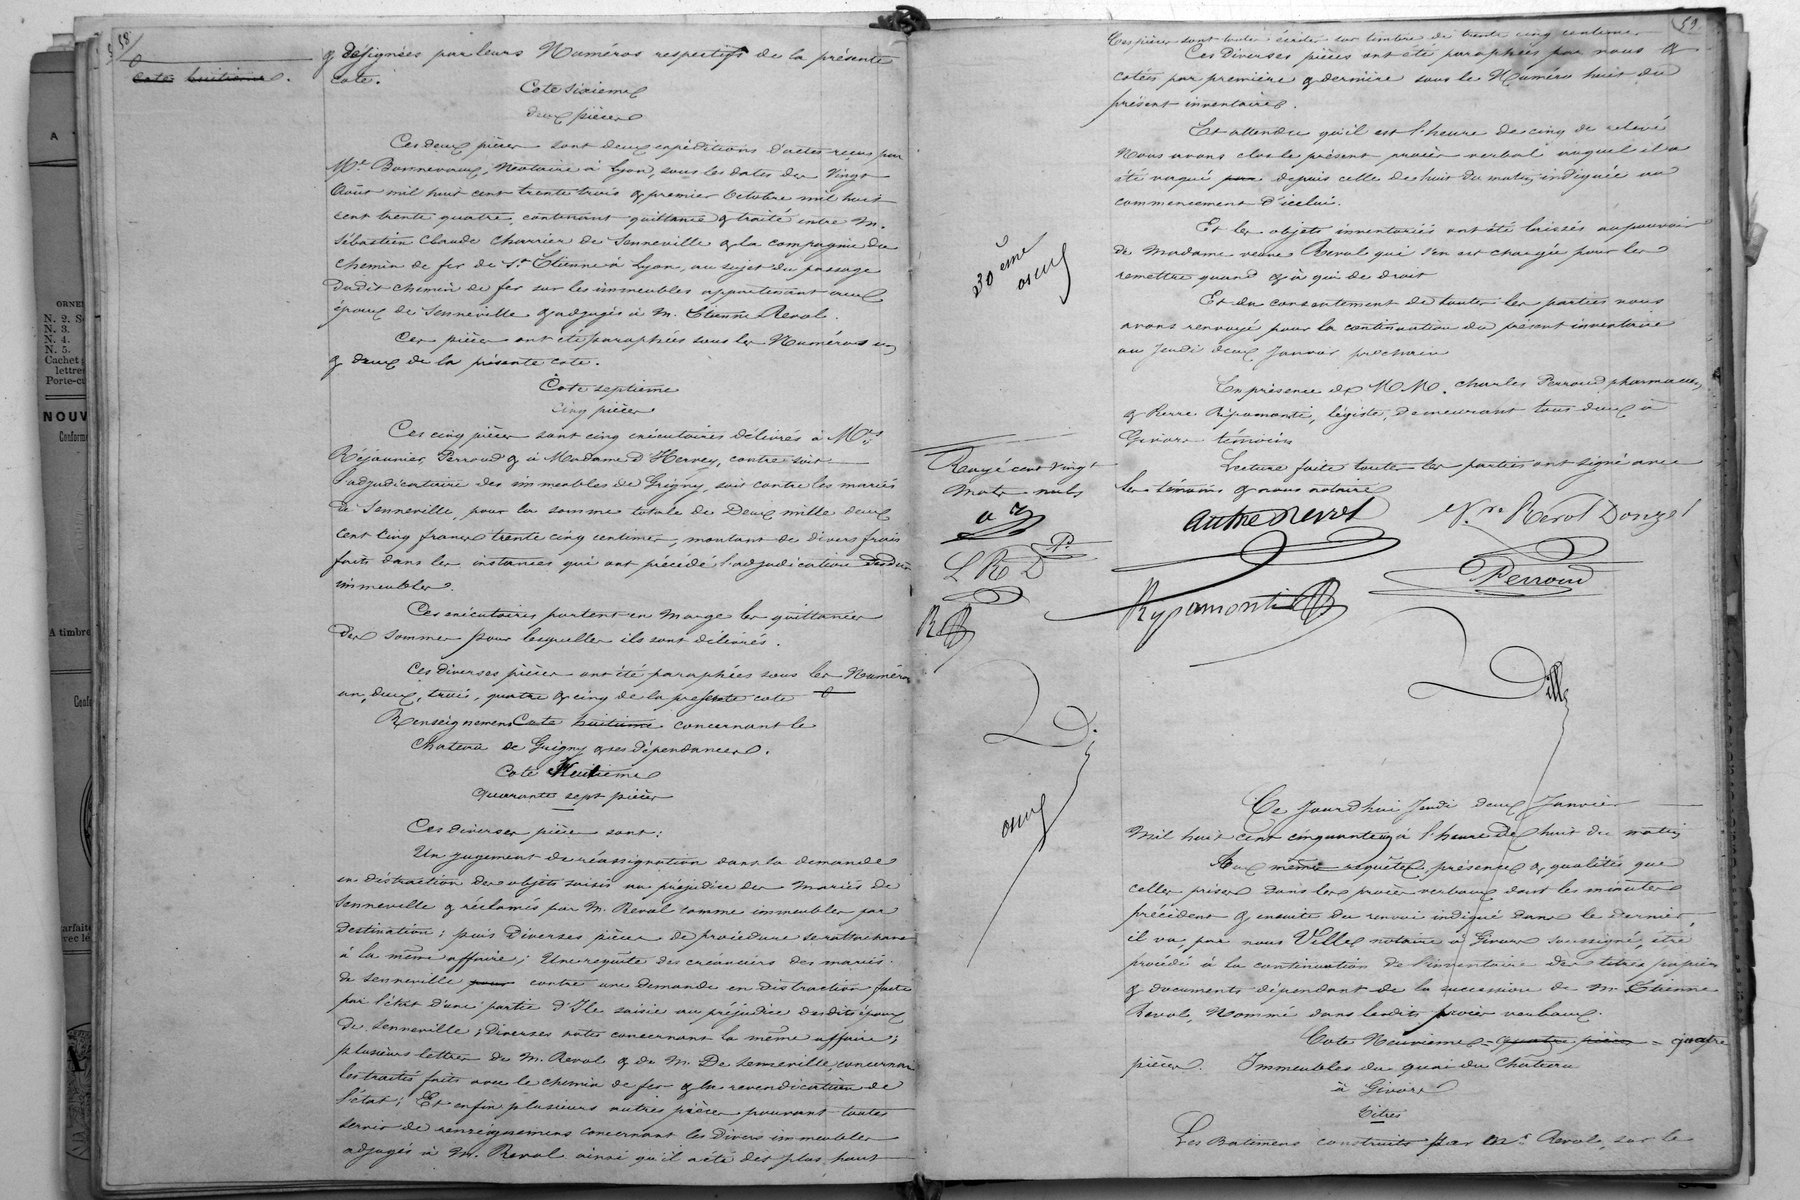 58
Cote huitième.
& désignées par leurs Numéros respectifs de la présente
cote.
Cote sixieme
deux pièces
Ces deux pièces sont deux expéditions d'actes reçus par
Me Bonnevaux, Notaire à Lyon, sous les dates des Vingt
Août mil huit cent trente trois & premier Octobre mil huit
cent trente quatre, contenant quittance & traité entre M.
Sébastien Claude Charrier de Senneville & la compagnie du
chemin de fer de St Etienne à Lyon, au sujet du passage
dudit chemin de fer sur les immeubles appartenant aux
époux de Senneville & adjugés à M. Etienne Revol.
Ces pièces ont été paraphées sous les Numéros un
& deux de la présente cote.
Cote septième
Cinq pièces
Ces cinq pièces sont cinq exécutoires délivrés à Mes
Réjaunier, Perroud & à Madame D'Hervey, contre soit
l'adjudicataire des immeubles de Grigny, soit contre les mariés
de Senneville, pour la somme totale de Deux mille deux
cent cinq francs trente cinq centimes, montant de divers frais
faits dans les instances qui ont précédé l'adjudication desdits
immeubles.
Ces exécutoires portent en marge les quittances
des sommes pour lesquelles ils sont délivrés.
Ces diverses pièces ont été paraphées sous les Numéros
un, deux, trois, quatre & cinq de la présente cote
Renseignemens Cote huitième concernant le
Chateau de Grigny & ses dépendances.
Cote Huitieme
Quarante sept pièces
Ces diverses pièces sont:
Un jugement de réassignation dans la demande
en distraction des objets saisis au préjudice des mariés de
Senneville & réclamés par M. Revol comme immeubles par
destination; puis diverses pièces de procédure se rattachant
à la même affaire; Une requête des créanciers des mariés
de Senneville pour contre une demande en distraction faite
par l'état d'une partie d'Ile saisie au préjudice desdits époux
de Senneville; Diverses notes concernant la même affaire;
plusieurs lettres de M. Revol & de M. De Senneville, concernant
les traités faits avec le chemin de fer & la revendication de
l'état; Et enfin plusieurs autres pièces pouvant toutes
servir de renseignemens concernant les divers immeubles
adjugés à M. Revol ainsi qu'il a été dit plus haut
59
Ces pièces sont toutes écrites sur timbre de trente cinq centimes
Ces Diverses pièces ont été paraphées par nous &
cotées par première & dernière sous le Numéro huit du
présent inventaire.
Et attendu qu'il est l'heure de cinq de relevé
Nous avons clos le présent procès verbal auquel il a
été vaqué par depuis celle de huit du matin, indiquée au
commencement d'icelui.
Et les objets inventoriés ont été laissés au pouvoir
de Madame veuve Revol qui s'en est chargée pour les
remettre quand & à qui de droit
Et du consentement de toutes les parties nous
avons renvoyé pour la continuation du présent inventaire
au Jeudi deux Janvier prochain
En présence de M.M. Charles Perroud pharmacien,
& Pierre Ripamonti, légiste, demeurant tous deux à
Givors témoins
Lecture faite toutes les parties ont signé avec
les témoins & nous notaire
30ème
Rayé cent vingt
Mots nuls
L R D P.
Antne Revol
Vve Revol Donzel
Rypamonti
Perroud
Ce Jourd'hui Jeudi deux Janvier
Mil huit cent cinquante un à l'heure de huit du matin
Aux même requête, présence & qualités que
celles prises dans les procès verbaux dont les minutes
précèdent & ensuite du renvoi indiqué dans le dernier
il va, par nous Dille notaire à Givors soussigné, être
procédé à la continuation de l'inventaire des titres papiers
& documents dépendant de la succession de M. Etienne
Revol, Nommé dans lesdits procès verbaux.
Cote Neuvieme = quatre pièces = quatre
pièces. Immeubles du quai du Château
à Givors
Titres
Les Batimens construits par Mr Revol, sur le